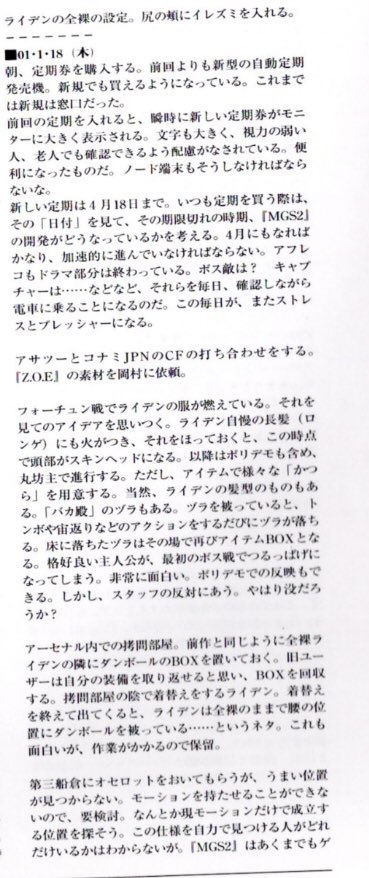 ライデンの全裸の設定。尻の頬にイレズミを入れる。
－－－－－－－
■01・1・18（木）
朝、定期券を購入する。前回よりも新型の自動定期
発売機。新規でも買えるようになっている。これまで
は新規は窓口だった。
前回の定期を入れると、瞬時に新しい定期券がモニ
ターに大きく表示される。文字も大きく、視力の弱い
人、老人でも確認できるよう配慮がなされている。便
利になったものだ。ノード端末もそうしなければなら
ないな。
新しい定期は４月18日まで。いつも定期を買う際は、
その「日付」を見て、その期限切れの時期、『MGS2』
の開発がどうなっているかを考える。4月にもなれば
かなり、加速的に進んでいなければならない。アフレ
コもドラマ部分は終わっている。ボス敵は？　キャプ
チャーは……などなど、それらを毎日、確認しながら
電車に乗ることになるのだ。この毎日が、またストレ
スとプレッシャーになる。
アサツーとコナミJPNのCFの打ち合わせをする。
『Z.O.E』の素材を岡村に依頼。
フォーチュン戦でライデンの服が燃えている。それを
見てのアイデアを思いつく。ライデン自慢の長髪（ロ
ンゲ）にも火がつき、それをほっておくと、この時点
で頭部がスキンヘッドになる。以降はポリデモも含め、
丸坊主で進行する。ただし、アイテムで様々な「かつ
ら」を用意する。当然、ライデンの髪型のものもあ
る。「バカ殿」のヅラもある。ヅラを被っていると、ト
ンボや宙返りなどのアクションをするだびにヅラが落ち
る。床に落ちたヅラはその場で再びアイテムBOXとな
る。格好良い主人公が、最初のボス戦でつるっぱげに
なってしまう。非常に面白い。ポリデモでの反映もで
きる。しかし、スタッフの反対にあう。やはり没だろ
うか？
アーセナル内での拷問部屋。前作と同じように全裸ラ
イデンの隣にダンボールのBOXを置いておく。旧ユー
ザーは自分の装備を取り返せると思い、BOXを回収
する。拷問部屋の陰で着替えをするライデン。着替え
を終えて出てくると、ライデンは全裸のままで腰の位
置にダンボールを被っている……というネタ。これも
面白いが、作業がかかるので保留。
第三船倉にオセロットをおいてもらうが、うまい位置
が見つからない。モーションを持たせることができな
いので、要検討。なんとか現モーションだけで成立す
る位置を探そう。この仕様を自力で見つける人がどれ
だけいるかはわからないが。『MGS2』はあくまでもゲ